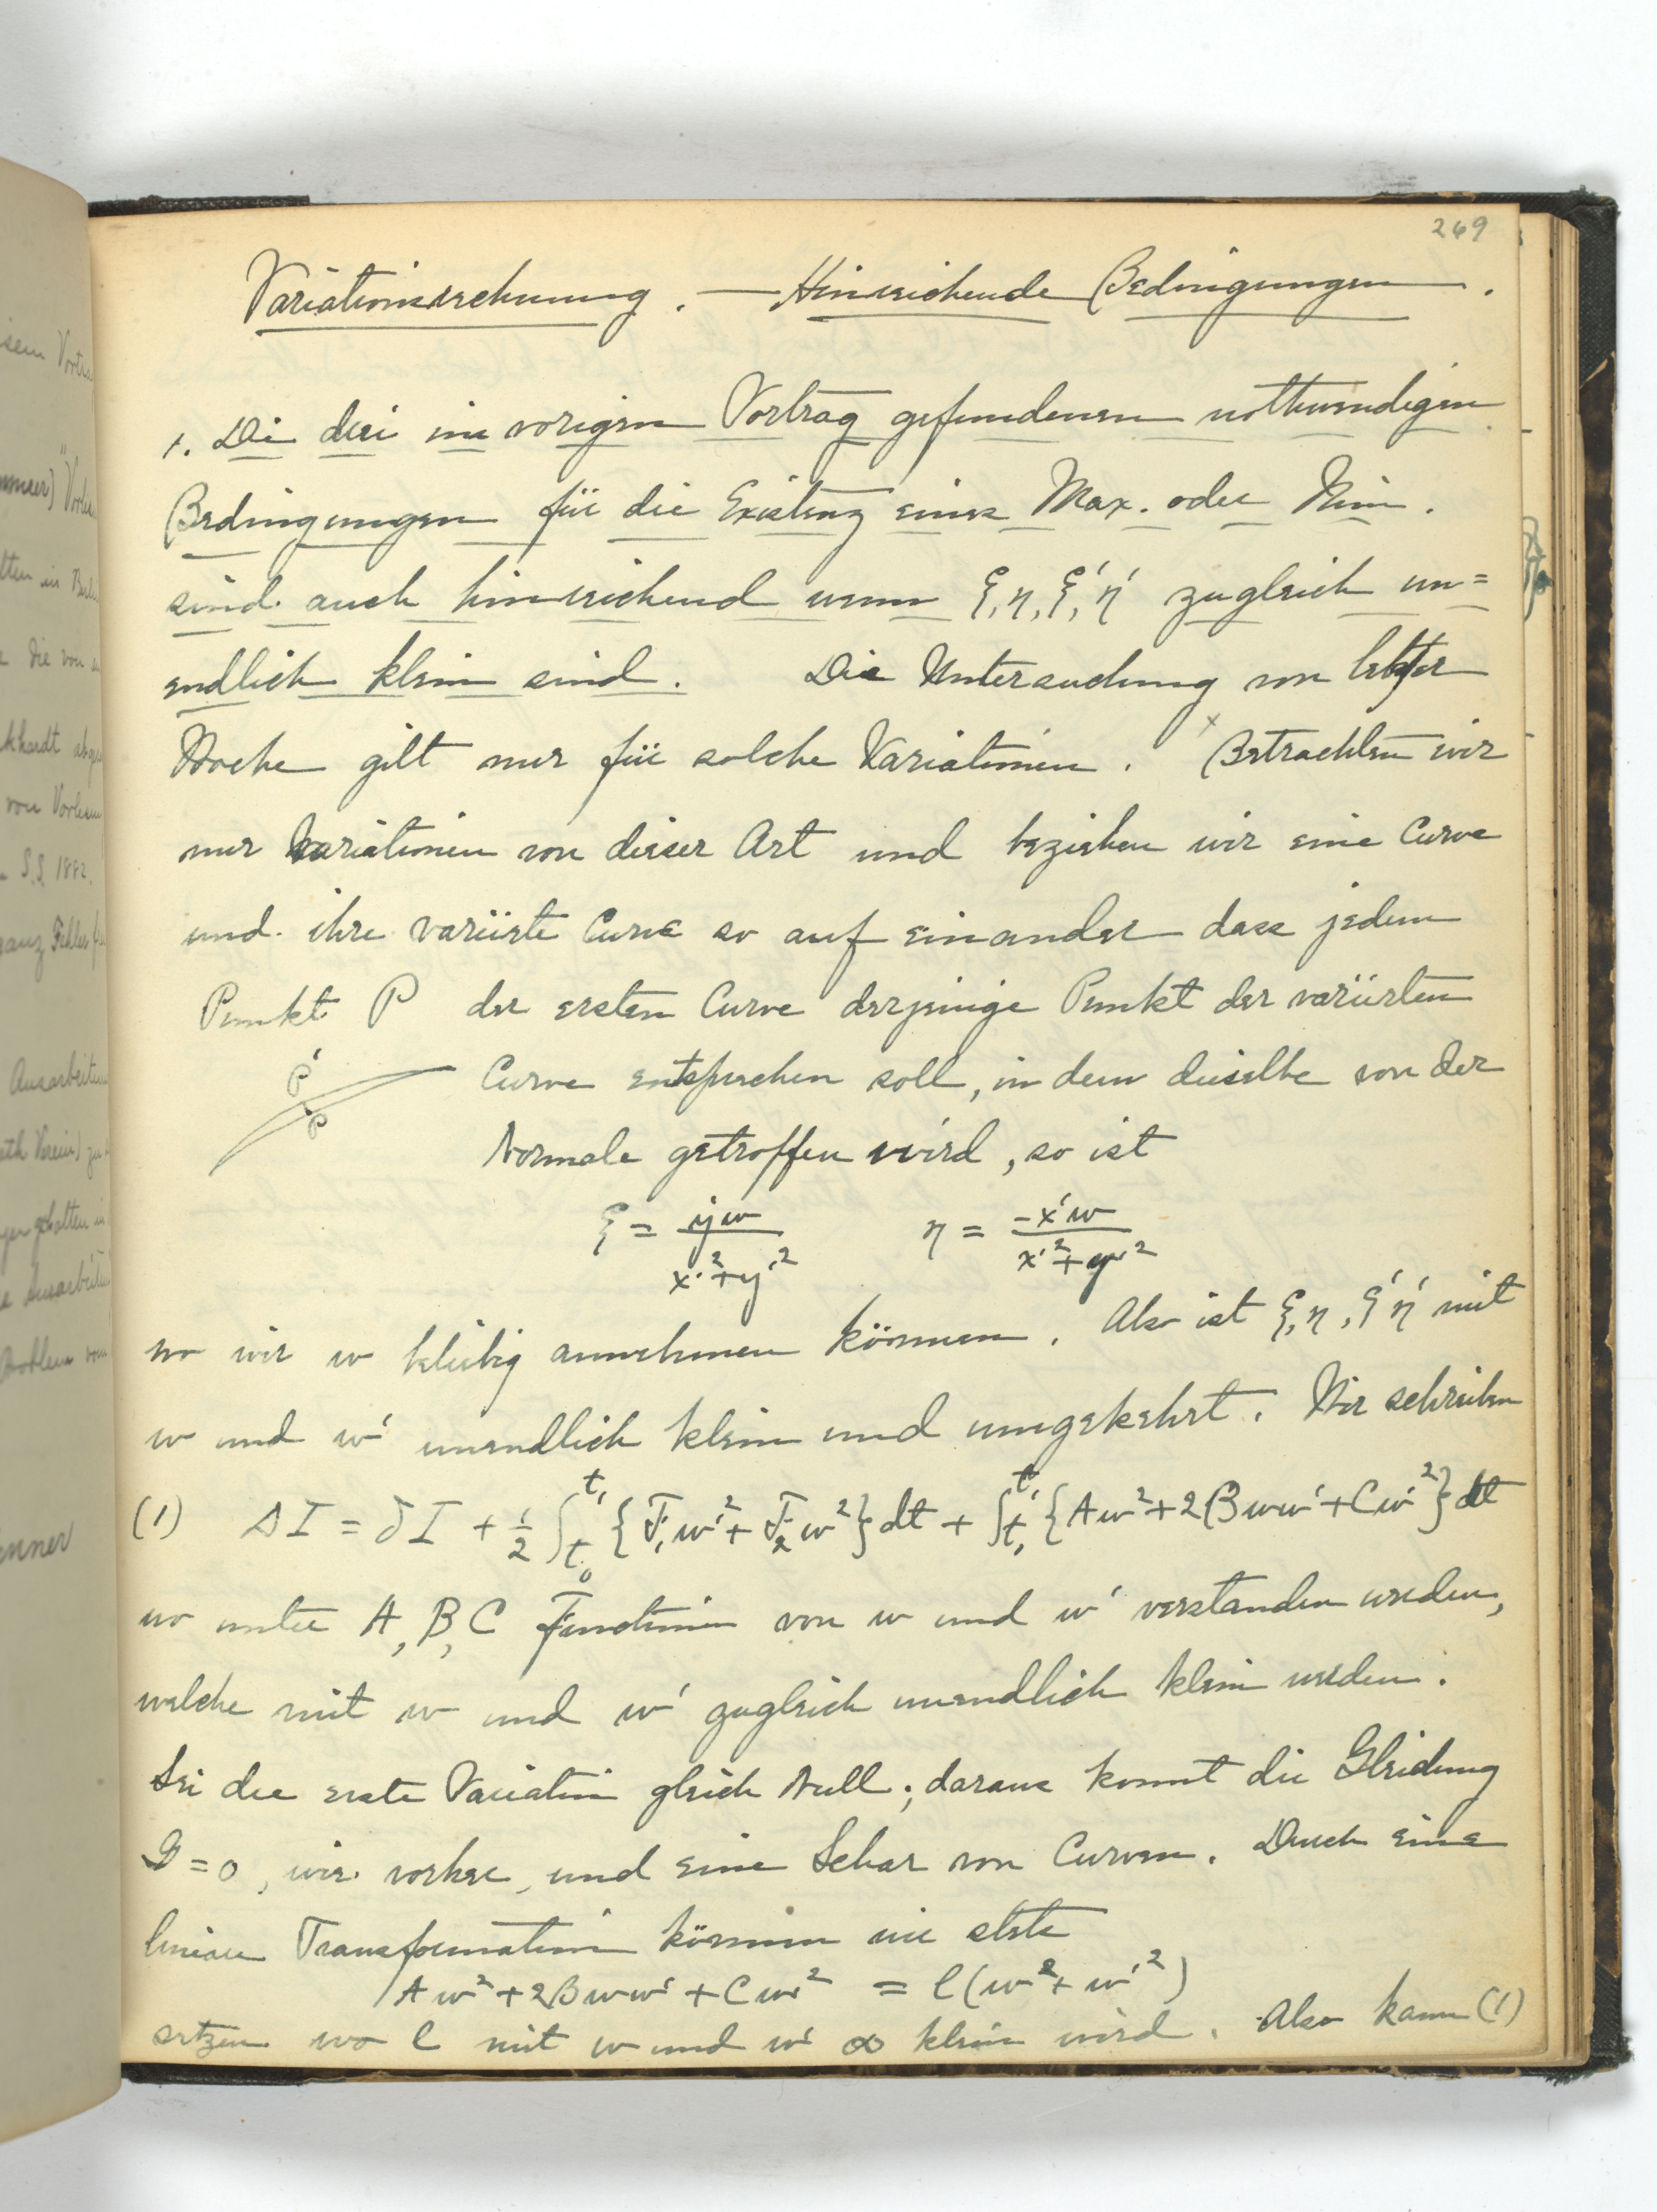 269
Variationsrechnung. — Hinreichende Bedingungen.
1. Die drei im vorigen Vortrag gefundenen nothwendigen
Bedingungen für die Existenz eines Max. oder Min.
sind auch hinreichend wenn ξ, η, ξ', η' zugleich un=
endlich klein sind. Die Untersuchung von letzter
Woche gilt nur für solche Variationen. × Betrachten wir
nur Variationen von dieser Art und beziehen wir eine Curve
und ihre variirte Curve so auf einander dass jedem
Punkt P der ersten Curve derjenige Punkt der variirten
P'
Curve entsprechen soll, in dem dieselbe von der
P
Normale getroffen wird, so ist
ξ = y'w / x'²+y'² η = -x'w / x'²+y'²
wo wir w beliebig annehmen können. Also ist ξ, η, ξ' η' mit
w und w' unendlich klein und umgekehrt. Wir schreiben
(1) ΔI = δI + 1/2 ∫_{t₀}^{t₁} {F₁w'² + F₂w²}dt + ∫_{t₀}^{t₁} {Aw² + 2Bww' + Cw'²}dt
wo unter A, B, C Functionen von w und w' verstanden werden,
welche mit w und w' zugleich unendlich klein werden.
Sei die erste Variation gleich Null; daraus kommt die Gleichung
G = 0, wie vorher, und eine Schar von Curven. Durch eine
lineare Transformation können wir stets
Aw² + 2Bww' + Cw'² = l(w² + w'²)
setzen wo l mit w und w' ∞ klein wird. Also kann (1)